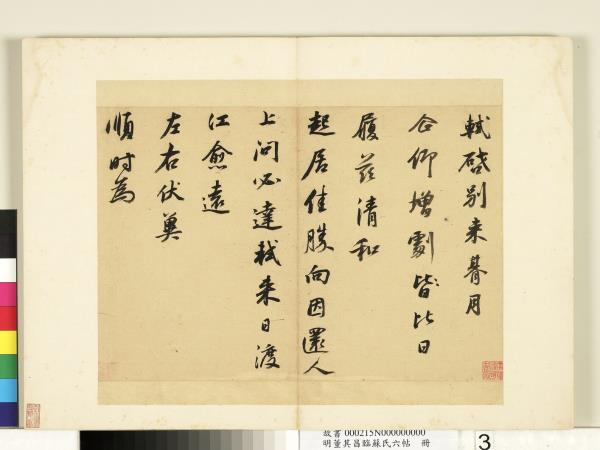 軾啓別来朞月
企仰增劇皆比日
履茲清和
起居佳勝向因還人
上问必達軾来日渡
江愈遠
左右伏冀
順时為
故書 000215N000000000
明董其昌臨蘇氏六帖 冊
3